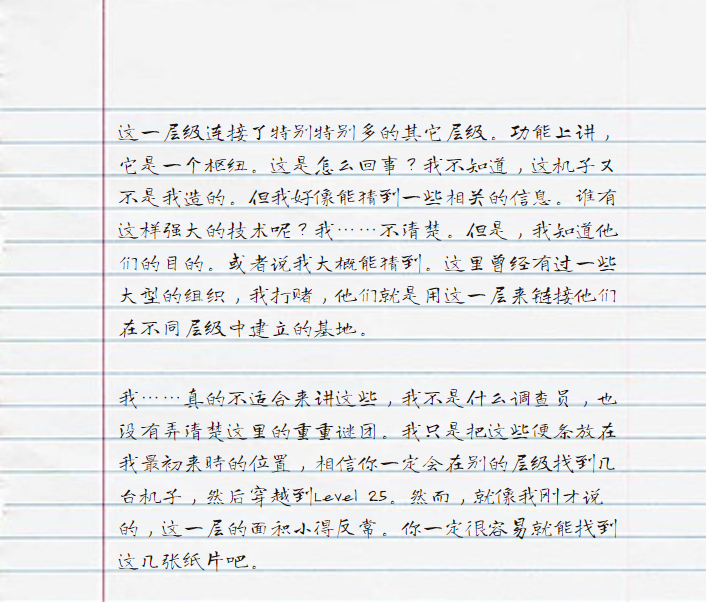 这一层级连接了特别特别多的其它层级。功能上讲，
它是一个枢纽。这是怎么回事？我不知道，这机子又
不是我造的。但我好像能猜到一些相关的信息。谁有
这样强大的技术呢？我……不清楚。但是，我知道他
们的目的。或者说我大概能猜到。这里曾经有过一些
大型的组织，我打赌，他们就是用这一层来链接他们
在不同层级中建立的基地。
我……真的不适合来讲这些，我不是什么调查员，也
没有弄清楚这里的重重谜团。我只是把这些便条放在
我最初来时的位置，相信你一定会在别的层级找到几
台机子，然后穿越到Level 25。然而，就像我刚才说
的，这一层的面积小得反常。你一定很容易就能找到
这几张纸片吧。